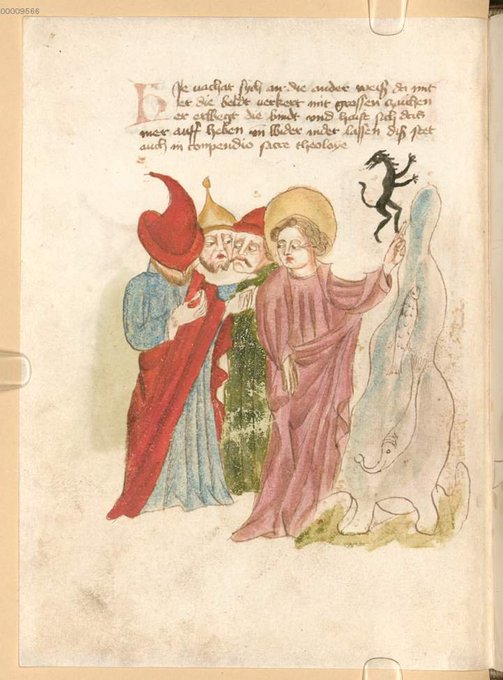 00009566
Hie vachet sych an die ander weiß da mit
er die welt verkert mit grossen zaichen
er erwegt die windt vnd haist sich das
mer auff heben vnd wider nider lassen diß stet
auch in conpendio sacre theoloye